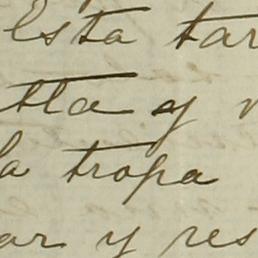 Esta tar
tta y
la tropa
ar y res